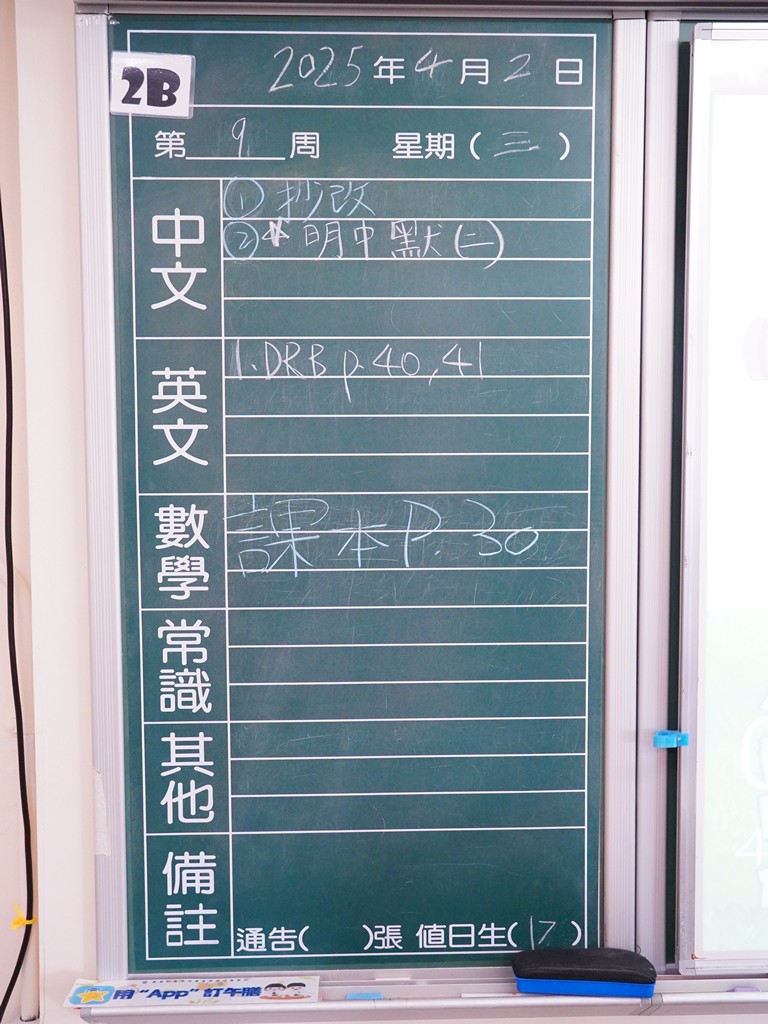 2B
2025年4月2日
第9周 星期(三)
中文
① 抄改
② 明中默(二)
英文
1. DRB p.40,41
數學
課本P.30
常識
其他
備註
通告( )張 值日生(17)
用“App”訂午膳